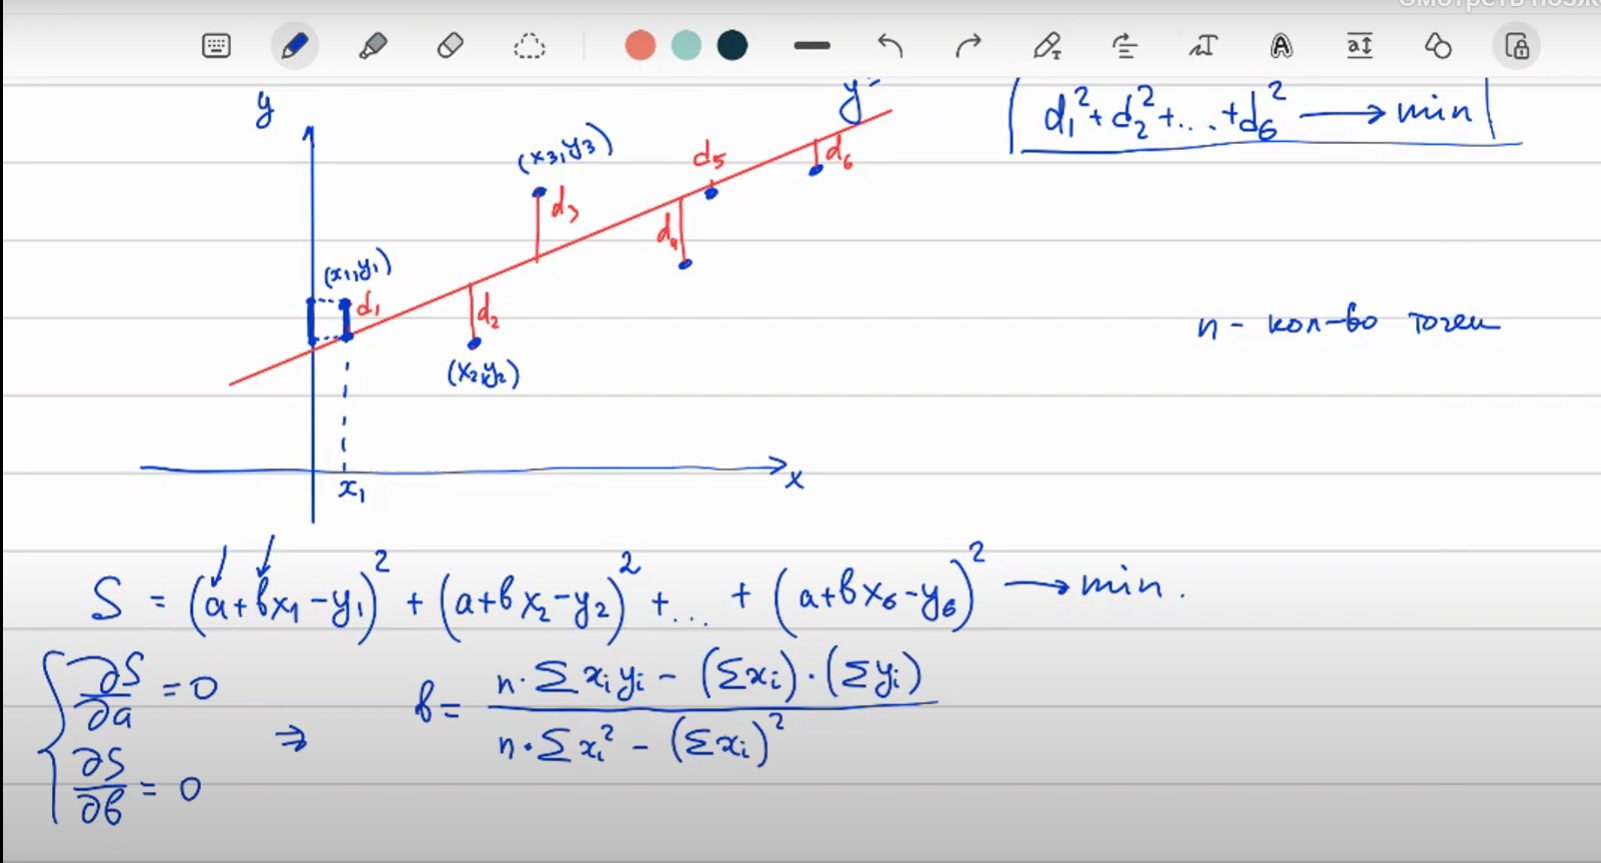 Смотреть позж
y
y
d₁²+d₂²+...+d₆² → min
(x₃,y₃)
d₅
d₆
d₃
d₄
(x₁,y₁)
d₁
d₂
n - кол-во точек
(x₂,y₂)
x
x₁
S = (a+bx₁-y₁)² + (a+bx₂-y₂)² +... + (a+bx₆-y₆)² → min.
{ ∂S/∂a = 0
⇒ b = (n·Σxᵢyᵢ - (Σxᵢ)·(Σyᵢ)) / (n·Σxᵢ² - (Σxᵢ)²)
∂S/∂b = 0